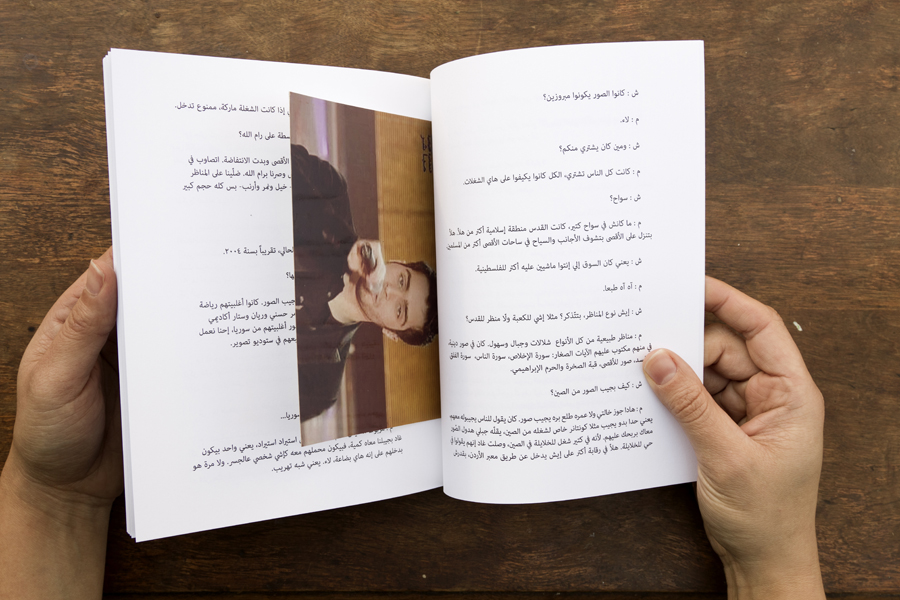 ش : كانوا الصور يكونوا مبروزين؟
م : لاء.
ش : ومين كان يشتري منكم؟
م : كانت كل الناس تشتري، الكل كانوا يكيفوا على هاي الشغلات.
ش : سواح؟
م : ما كانش في سواح كتير، كانت القدس منطقة إسلامية أكثر من هلأ. هلأ
بتنزل على الأقصى بتشوف الأجانب والسياح في ساحات الأقصى أكثر من المسلمين.
ش : يعني كان السوق إلي إنتوا ماشيين عليه أكثر للفلسطينية.
م : آه آه طبعا.
ش : إيش نوع المناظر، بتتذكر؟ مثلا إشي للكعبة ولّا منظر للقدس؟
م : مناظر طبيعية من كل الأنواع شلالات وجبال وسهول. كان في صور دينية،
في منهم مكتوب عليهم الآيات الصغار: سورة الإخلاص، سورة الناس، سورة الفلق
صور للأقصى، قبة الصخرة والحرم الإبراهيمي.
ش : كيف بجيب الصور من الصين؟
م : هادا جوز خالتي ولا عمره طلع بره يجيب صور. كان يقول للناس يجيبوله معهم،
يعني حدا بدو يجيب مثلا كونتانر خاص لشغله من الصين، يقلّه جبلي هدول الصور
معاك بربحك عليهم. لأنه في كتير شغل للخلايلة في الصين، وصلت غاد إنهم يقولوا في
حي للخلايلة. هلأ في رقابة أكثر على إيش يدخل عن طريق معبر الأردن، بقدرش
إذا كانت الشغلة ماركة، ممنوع تدخل.
على رام الله؟
الأقصى وبدت الانتفاضة. اتصاوب في
وصرنا برام الله. ضلّينا على المناظر
خيل ونمر وأرنب- بس كله حجم كبير
تقريباً بسنة ٢٠٠٤.
بجيب الصور. كانوا أغلبيتهم رياضة
حسني وريان وستار أكاديمي
أغلبيتهم من سوريا، إحنا نعمل
في ستوديو تصوير.
سوريا...
استيراد استيراد، يعني واحد بيكون
غاد بجيبلنا معاه كمية، فبيكون محملهم معه كإشي شخصي عالجسر، ولا مرة هو
بدخلهم على إنه هاي بضاعة، لاء. يعني شبه تهريب.